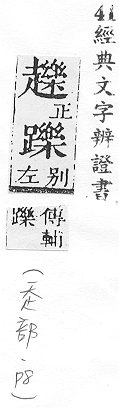 41經典文字辨證書
䟏正躒別左
傳輔
躒
(走部·P8)